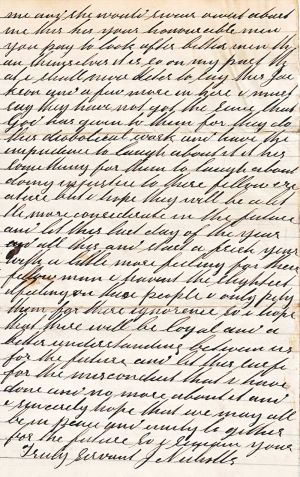 me and she would swear awat about
me this his your honourable men
you pay to look after better men th
an themselves it is so on my part th
at i shall and a few more in here i must
say they have not got the sense that
God has given to them for they do
this diabolical work and have the
impudence to laugh about it it his
something for them to laugh about
doing injustice to there fellow cre
ature but i hope they will be a lit
tle more considerate in the future
and let this last day of the year
end all this and start a fresh year
with a little more feeling for there
fellow man i havent the slightest
feeling on these people i only pity
them for there ignorence so i hope
that there will be loyal and a
better understanding between us
for the future and let this
for the misconduct that i have
done and no more about it and
i sincerely hope that we may all
be in peace and unity to gether
for the future so i remain your
Truly Servant J Nicholls